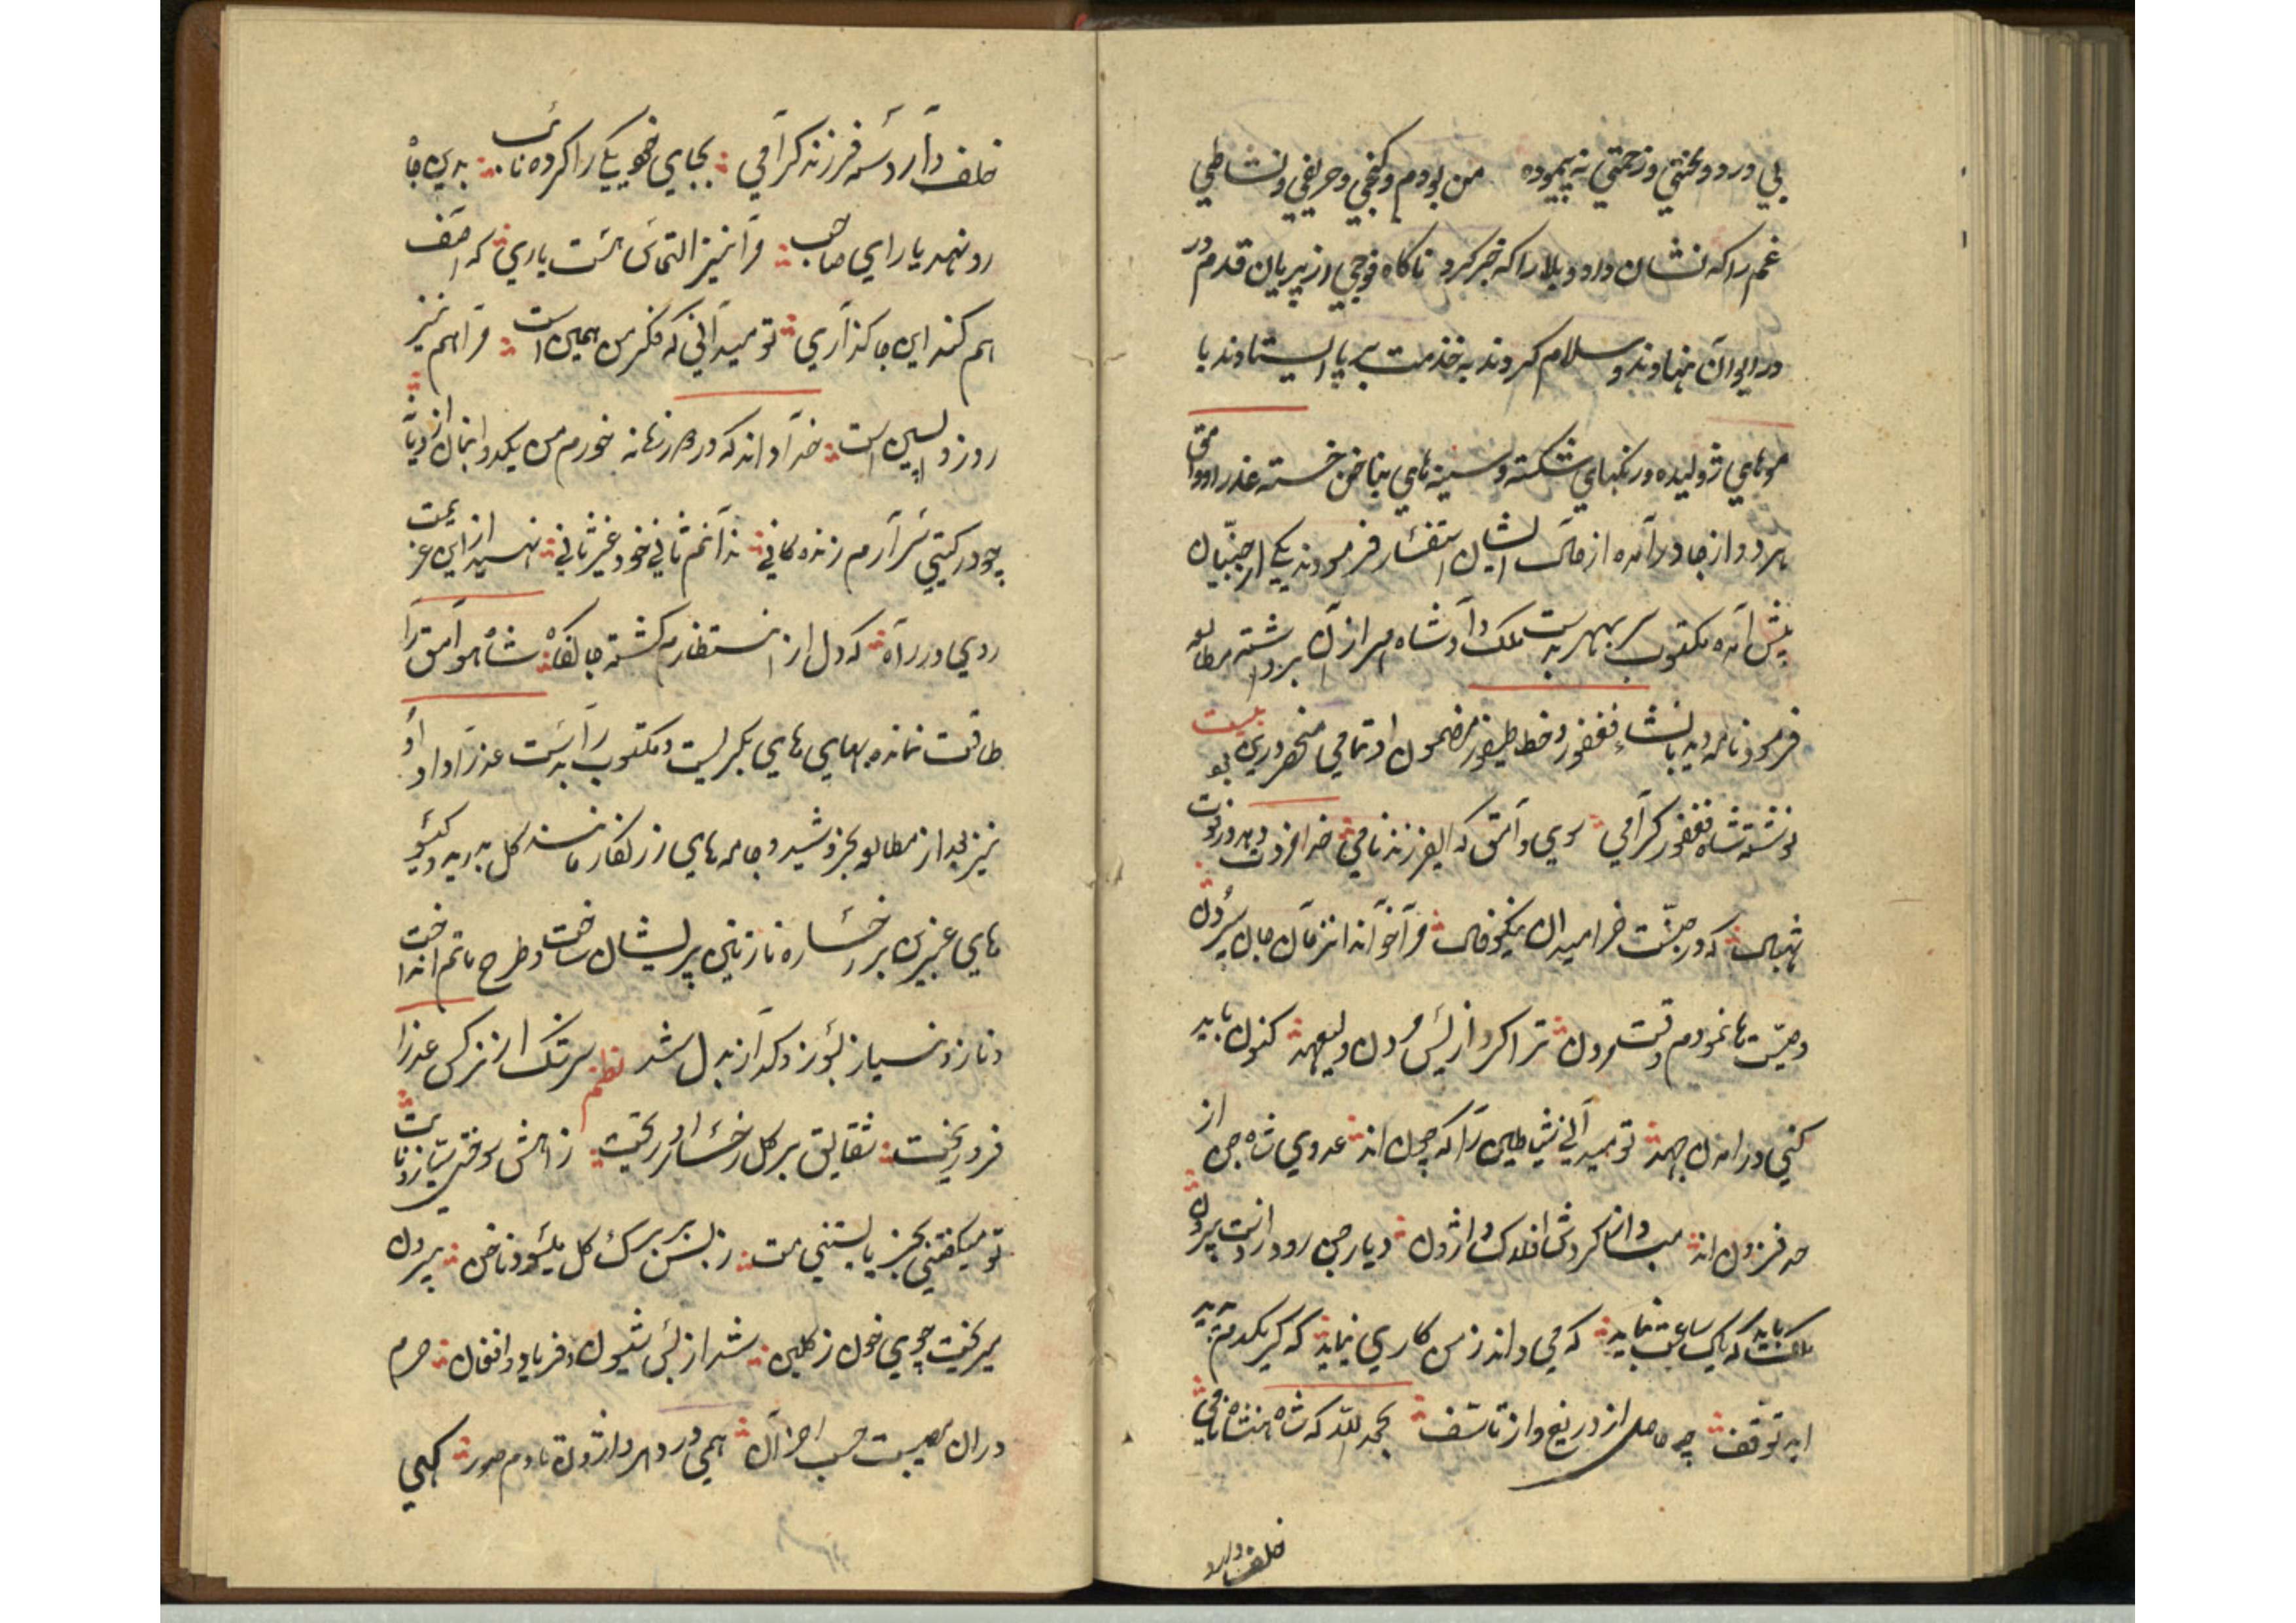 بی درد و محنتی و زحمتی نه پیموده من بودم و کنجی و حریفی و نشاطی
غم را که نشان داد و بلا را که خبر کرد ناکاه فوجی از پریان قدم در
در ایوان نهادند و سلام کردند به خدمت بر پا ایستادند با
موهای ژولیده و رنکهای شکسته و سینه های بناخن خسته عذرا و وامق
هر دو از جا درآمده از حال ایشان استفسار فرمودند یکی از جنّیان
پیش آمده مکتوب سر بمهر بدست ملک داد شاه مهر از آن برداشته مطالعه
فرمود نامه دید بانشاء فغفور و خط طیفور مضمون او تمامی منحصر درین بیت بو
نوشته شاه فغفور کرامی سوی وامق که ای فرزند نامی خدا افزون دهد روزت
شهبال که در جنّت خرامید ان نیکوفال مرا خواند انزمان حال سپردن
وصیّت ها نمودم وقت مردن ترا کرد از پس مردن ولیعهد کنون باید
کنی در امدن جهد تو میدانی شیاطین را که چون اند عدوی شاه جن از
حد فزون اند مبادا کردش افلاک واژون دیار جن رود از دست بیرون
باید که یک ساعت نماید که می داند زمن کاری نماید که کر یکدم پدید
اید توقف چه حاصل از دریغ و از تاسّف بحمد الله که شاهنشاه نامی
خلف دارد
خلف دارد سه فرزند کرامی بجای خود یکی را کرده نایب بدین جا
رو نهد یا رای صاحب مرا نیز التماس هست یاری که اصف
هم کند این جا کذاری تو میدانی که فکر من همین است مرا هم نیز
روز واپسین است خدا داند که در هر زمانه خورم من یکدو
چو در کیتی سر آرم زنده کانی ندانم ثانی خود غیر ثانی نهید از این عزیمت
روی در راه که دل از انتظارم کشته جانکاه شاه وامق را
طاقت نمانده بهای های بکریست و مکتوب را بدست عذرا داد او
نیز بعد از مطالعه بخروشید و جامه های زرنکار مانند کل بدرید و کیسو
های عنبرین بر رخساره نازنین پریشان ساخت و طرح ماتم انداخت
و ناز و نیاز بسوز و کداز بدل شد نظم سرشک از نرکس عذرا
فرو ریخت شقایق بر کل رخسار او ریخت
تو میکفتی بجز یا بستنی مت ز نسرین برک کل میسود ناخن بیرون
میریخت جوی خون ز کلبن شد از بس شیون و فریاد و افغان حرم
دران مصیبت حسب احزان همی در دهر واژون تا دم صور کهی